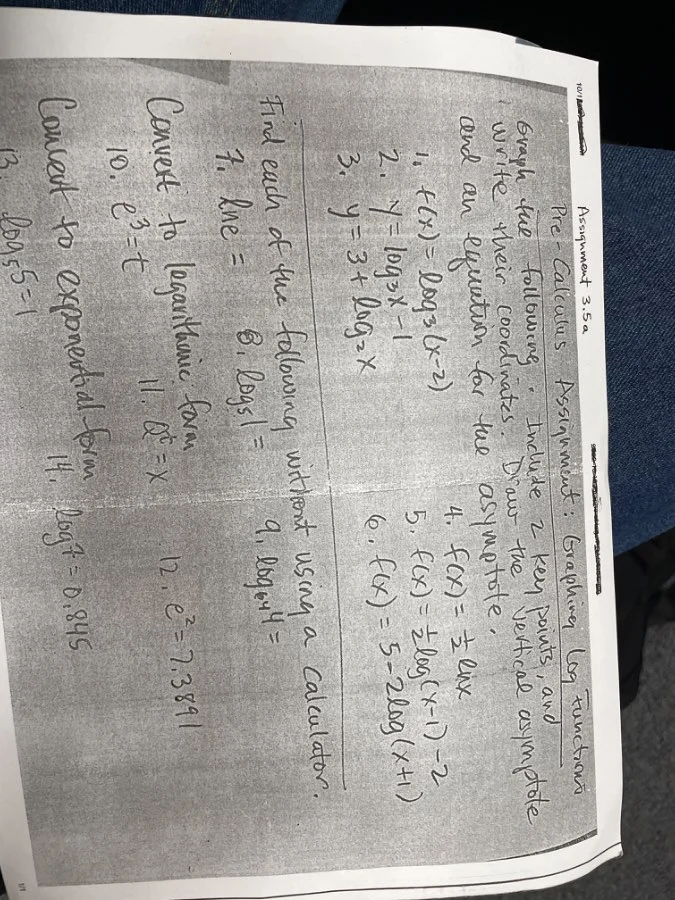 Assignment 3.5a
Pre-Calculus Assignment: Graphing Log Functions
Graph the following. Include 2 key points, and
write their coordinates. Draw the vertical asymptote
and an equation for the asymptote.
1. f(x) = log₃(x-2)
2. y = log₃x - 1
3. y = 3 + log₂x
4. f(x) = ½ lnx
5. f(x) = ½log(x-1) - 2
6. f(x) = 5 - 2log(x+1)
Find each of the following without using a calculator.
7. lne =
8. log₅1 =
9. log₆₄4 =
Convert to logarithmic form
10. e³ = t
11. = x
12. e² = 7.3891
Convert to exponential form
13. log₅5 = 1
14. log7 = 0.845
1/1